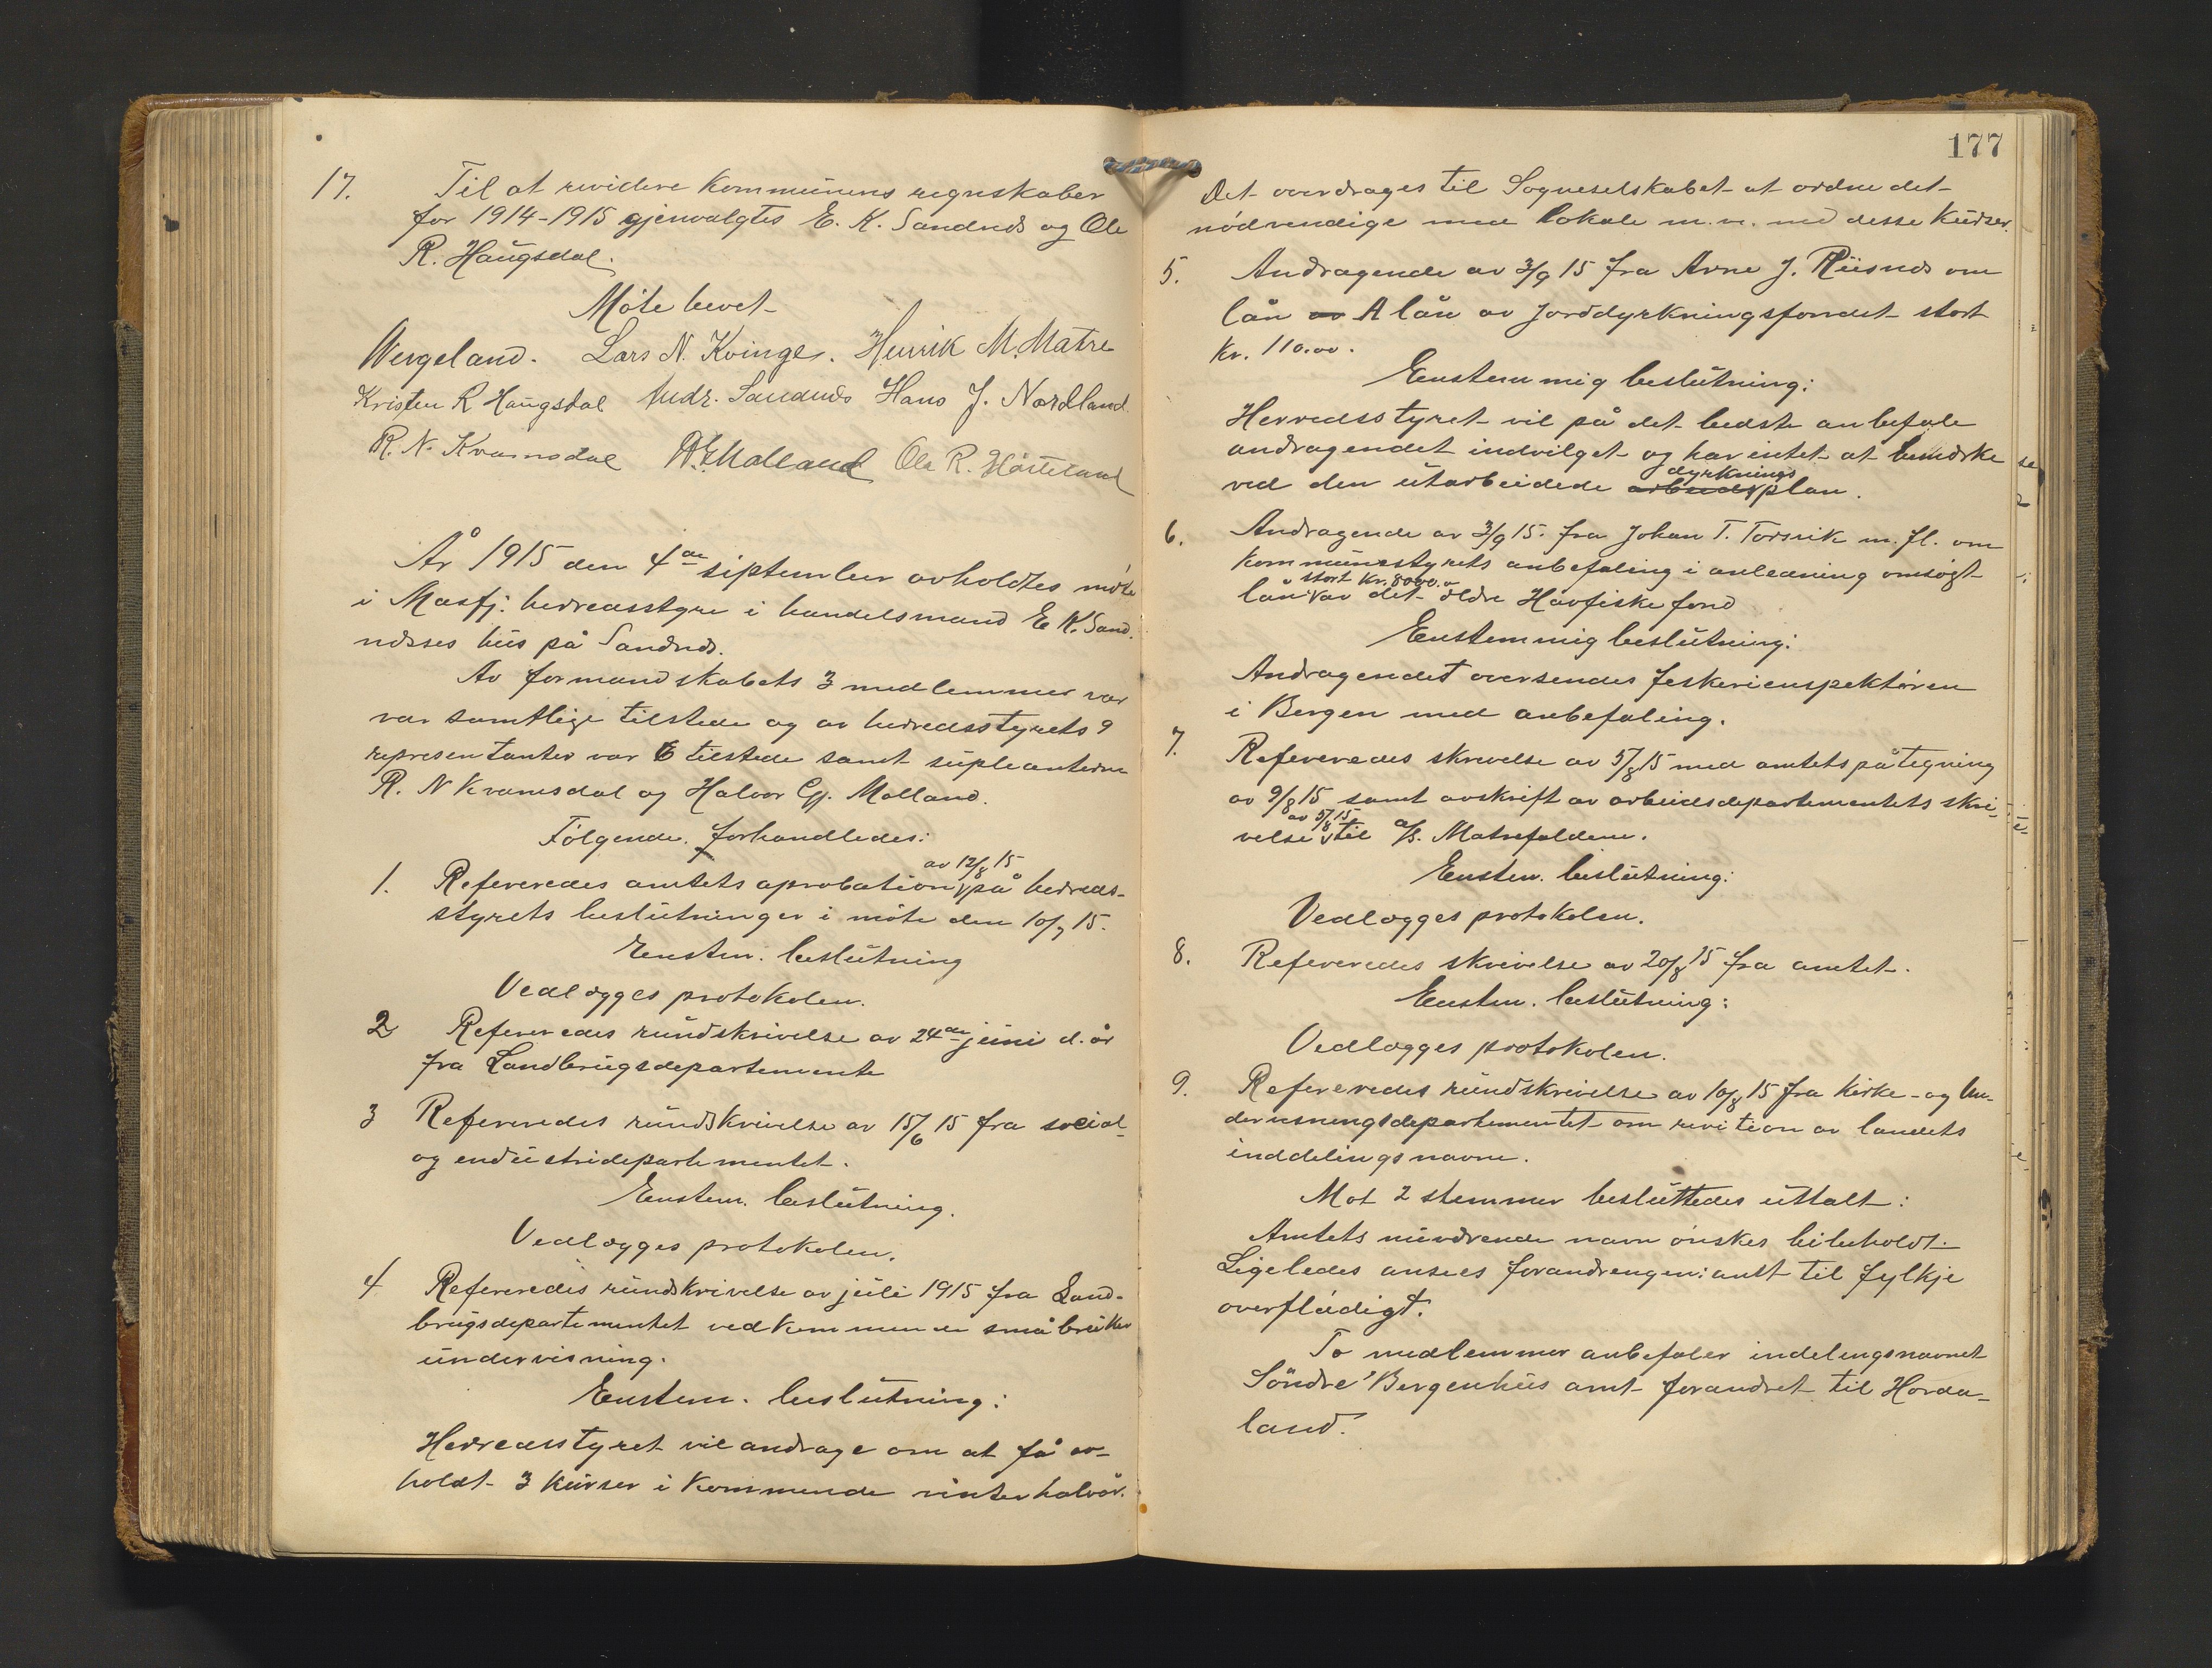 17. Til at revidere kommunens regnskaber
for 1914-1915 gjenvalgtes E. K. Sandnæs og Ole
R. Haugsdal.
Møte hevet
Wergeland. Lars N. Kvinge. Henrik M. Matre
Kristen R Haugsdal Andr. Sandnæs Hans J. Nordland
R. N. Kvamsdal H G Molland Ole R. Hosteland
År 1915 den 4de september avholdtes møte
i Masfj. herredsstyre i handelsmand E K. Sand-
næsses hus på Sandnæs.
Av formandskabets 3 medlemmer var
var samtlige tilstede og av herredsstyrets 9
representanter var 6 tilstede samt supleanterne
R. N Kvamsdal og Halvor Gj. Molland.
Følgende forhandledes:
1. Refereredes amtets aprobation av 12/8 15 på herreds-
styrets beslutninger i møte den 10/7 15.
Enstem. beslutning
Vedlægges protokolen.
2 Refereredes rundskrivelse av 24de juni d. år
fra Landbrugsdepartemente
3 Refereredes rundskrivelse av 15/6 15 fra social-
og endustridepartementet.
Enstem. beslutning.
Vedlægges protokolen.
4 Refereredes rundskrivelse av juli 1915 fra Land-
brugsdepartementet vedkommende småbruker
undervisning.
Enstem. beslutning:
Herredsstyret vil andrage om at få av-
holdt 3 kurser i kommende vinterhalvår.
177
Det overdrages til Sogneselskabet at ordne det
nødvendige med lokale m.v. ved desse kurser.
5. Andragende av 3/9 15 fra Arne J. Riisnæs om
lån av A lån av Jorddyrkningsfondet stort
kr. 110.00.
Enstemmig beslutning:
Herredsstyret vil på det bedste anbefale
andragendet indvilget og har intet at bemærke
ved den utarbeidede arbeids dyrkningsplan.
6. Andragende av 3/9 15. fra Johan T. Torsvik m. fl. om
kommunestyrets anbefaling i anledning omsøgt
lån stort kr. 8000.00 av det ældre Havfiskefond
Enstemmig beslutning:
Andragendet oversendes feskerienspektøren
i Bergen med anbefaling.
7. Refereredes skrivelse av 5/8 15 med amtets påtegning
av 9/8 15 samt avskrift av arbeidsdepartementets skri-
velse av 5/8 15 til a/s. Matrefaldene.
Enstem. beslutning:
Vedlægges protokolen.
8. Refereredes skrivelse av 20/8 15 fra amtet.
Enstem. beslutning:
Vedlægges protokolen.
9. Refereredes rundskrivelse av 10/8 15 fra Kirke- og Un-
dervisningsdepartementet om revition av landets
inddelingsnavne.
Mot 2 stemmer besluttedes uttalt:
Amtets nuværende navn ønskes bibeholdt.
Ligeledes ansees forandrengen: amt til fylkje
overflødigt.
To medlemmer anbefaler indelingsnavnet
Søndre Bergenhus amt forandret til Horda-
land.